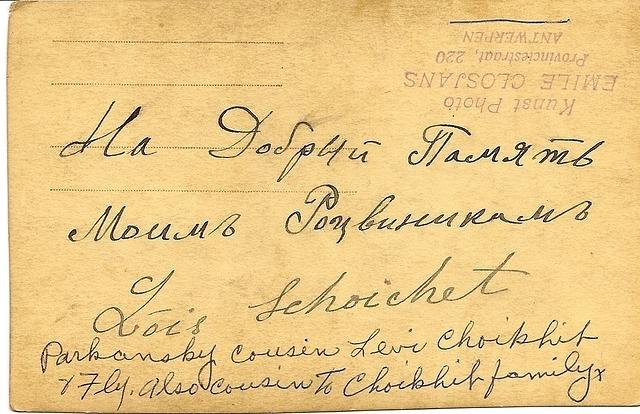 Kunst Photo
EMILE CLOSJANS
Provinciestraat, 220
ANTWERPEN
На Добрий Память
Моимъ Роцвиникамъ
Lois Schoichet
Parkansky cousin Levi Choikhit
& Fly. also cousin to Choikhit family